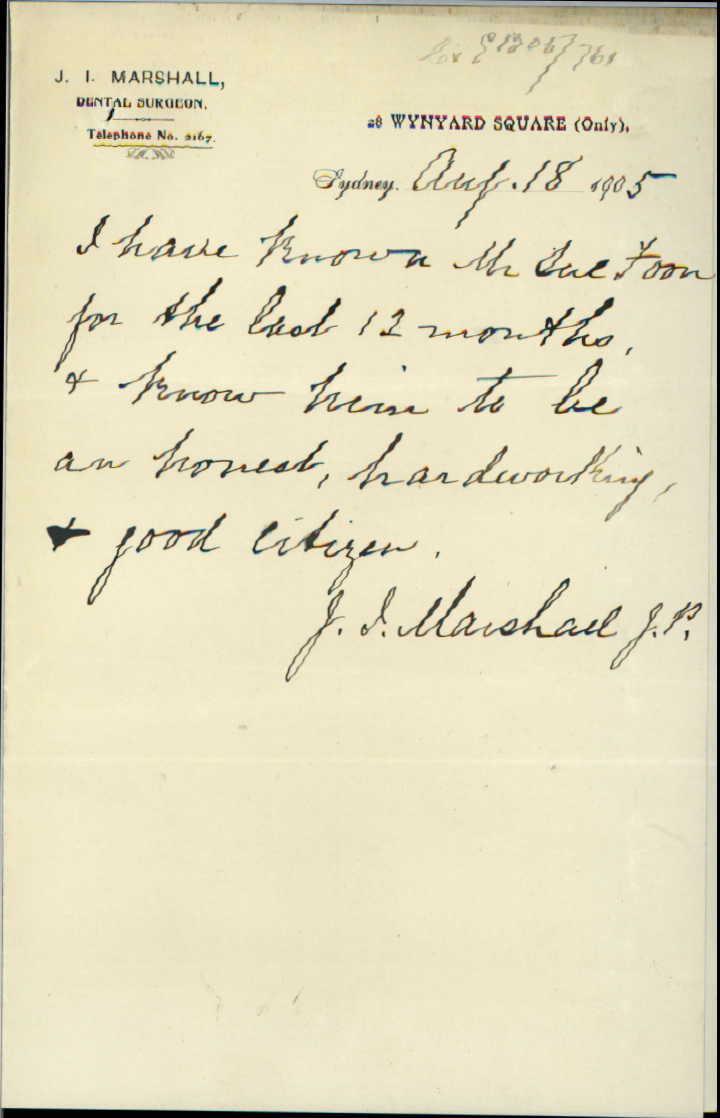 J. I. MARSHALL,
DENTAL SURGEON.
Telephone No. 2167.
28 WYNYARD SQUARE (Only),
Sydney. Aug. 18 1905
I have known Mr Sue Foon
for the last 12 months,
& know him to be
an honest, hardworking,
& good citizen.
J. I. Marshall J.P.